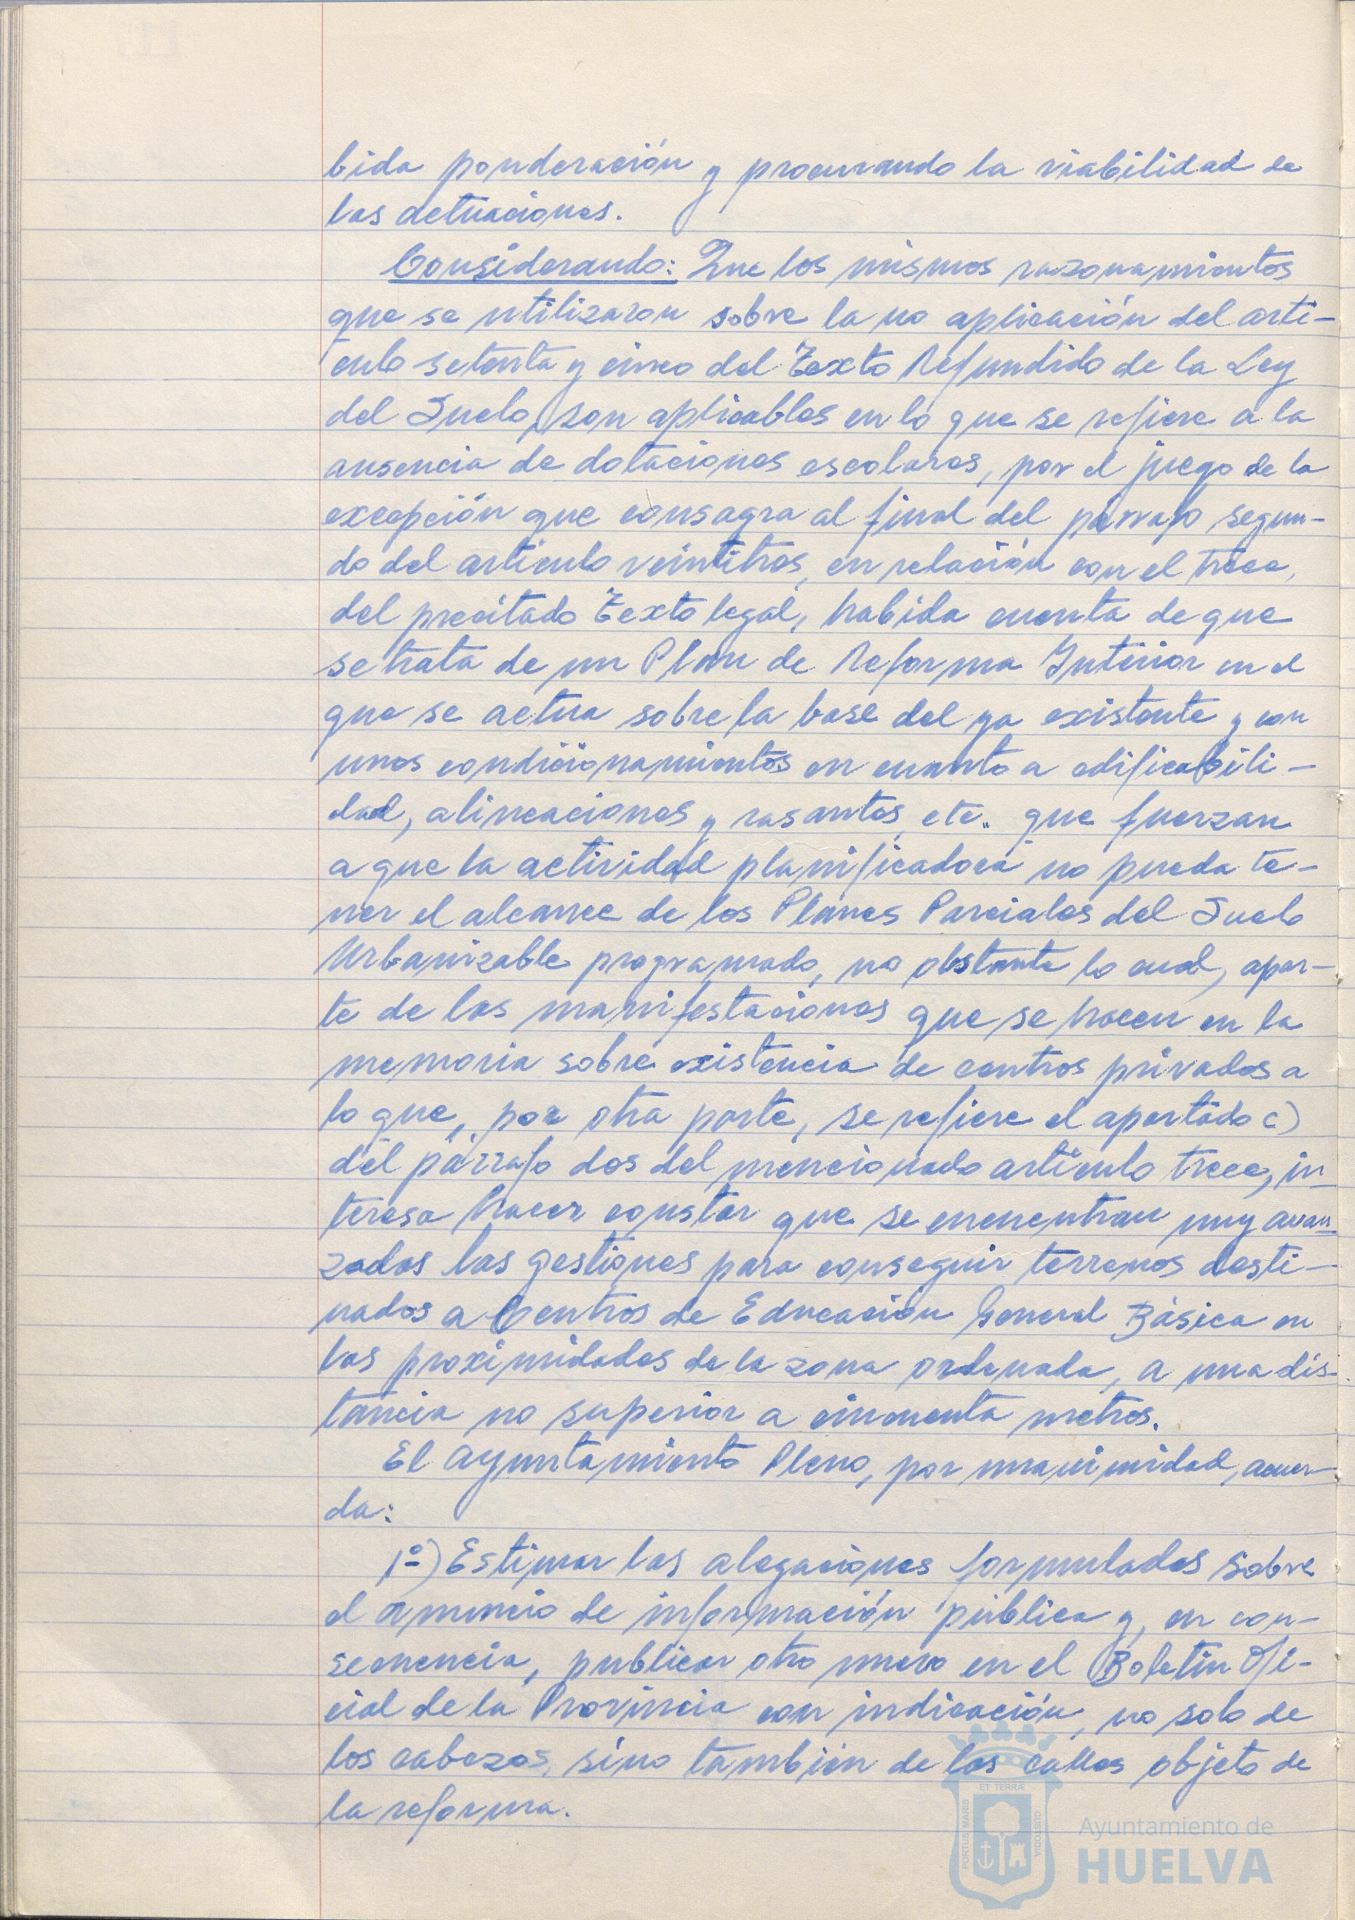 bida ponderación y procurando la viabilidad de
las actuaciones.
Considerando: Que los mismos razonamientos
que se utilizaron sobre la no aplicación del artí-
culo setenta y cinco del Texto Refundido de la Ley
del Suelo, son aplicables en lo que se refiere a la
ausencia de dotaciones escolares, por el juego de la
excepción que consagra al final del párrafo segun-
do del artículo veintitres, en relación con el trece,
del precitado Texto legal, habida cuenta de que
se trata de un Plan de Reforma Interior en el
que se actua sobre la base del ya existente y con
unos condicionamientos en cuanto a edificabili-
dad, alineaciones y rasantes, etc. que fuerzan
a que la actividad planificadora no pueda te-
ner el alcance de los Planes Parciales del Suelo
Urbanizable programado, no obstante lo cual, apar-
te de las manifestaciones que se hacen en la
memoria sobre existencia de centros privados a
lo que, por otra parte, se refiere el apartado c)
del párrafo dos del mencionado artículo trece, in-
teresa hacer constar que se encuentran muy avan-
zadas las gestiones para conseguir terrenos desti-
nados a Centros de Educación General Básica en
las proximidades de la zona ordenada, a una dis-
tancia no superior a cincuenta metros.
El Ayuntamiento Pleno, por unanimidad, acuer-
da:
1º) Estimar las alegaciones formuladas sobre
el anuncio de información pública y, en con-
secuencia, publicar otro nuevo en el Boletín Ofi-
cial de la Provincia con indicación, no solo de
los cabezos, sino también de las calles objeto de
la reforma.
PORTUS MARIS
ET TERRÆ
CUSTODIA
Ayuntamiento de
HUELVA